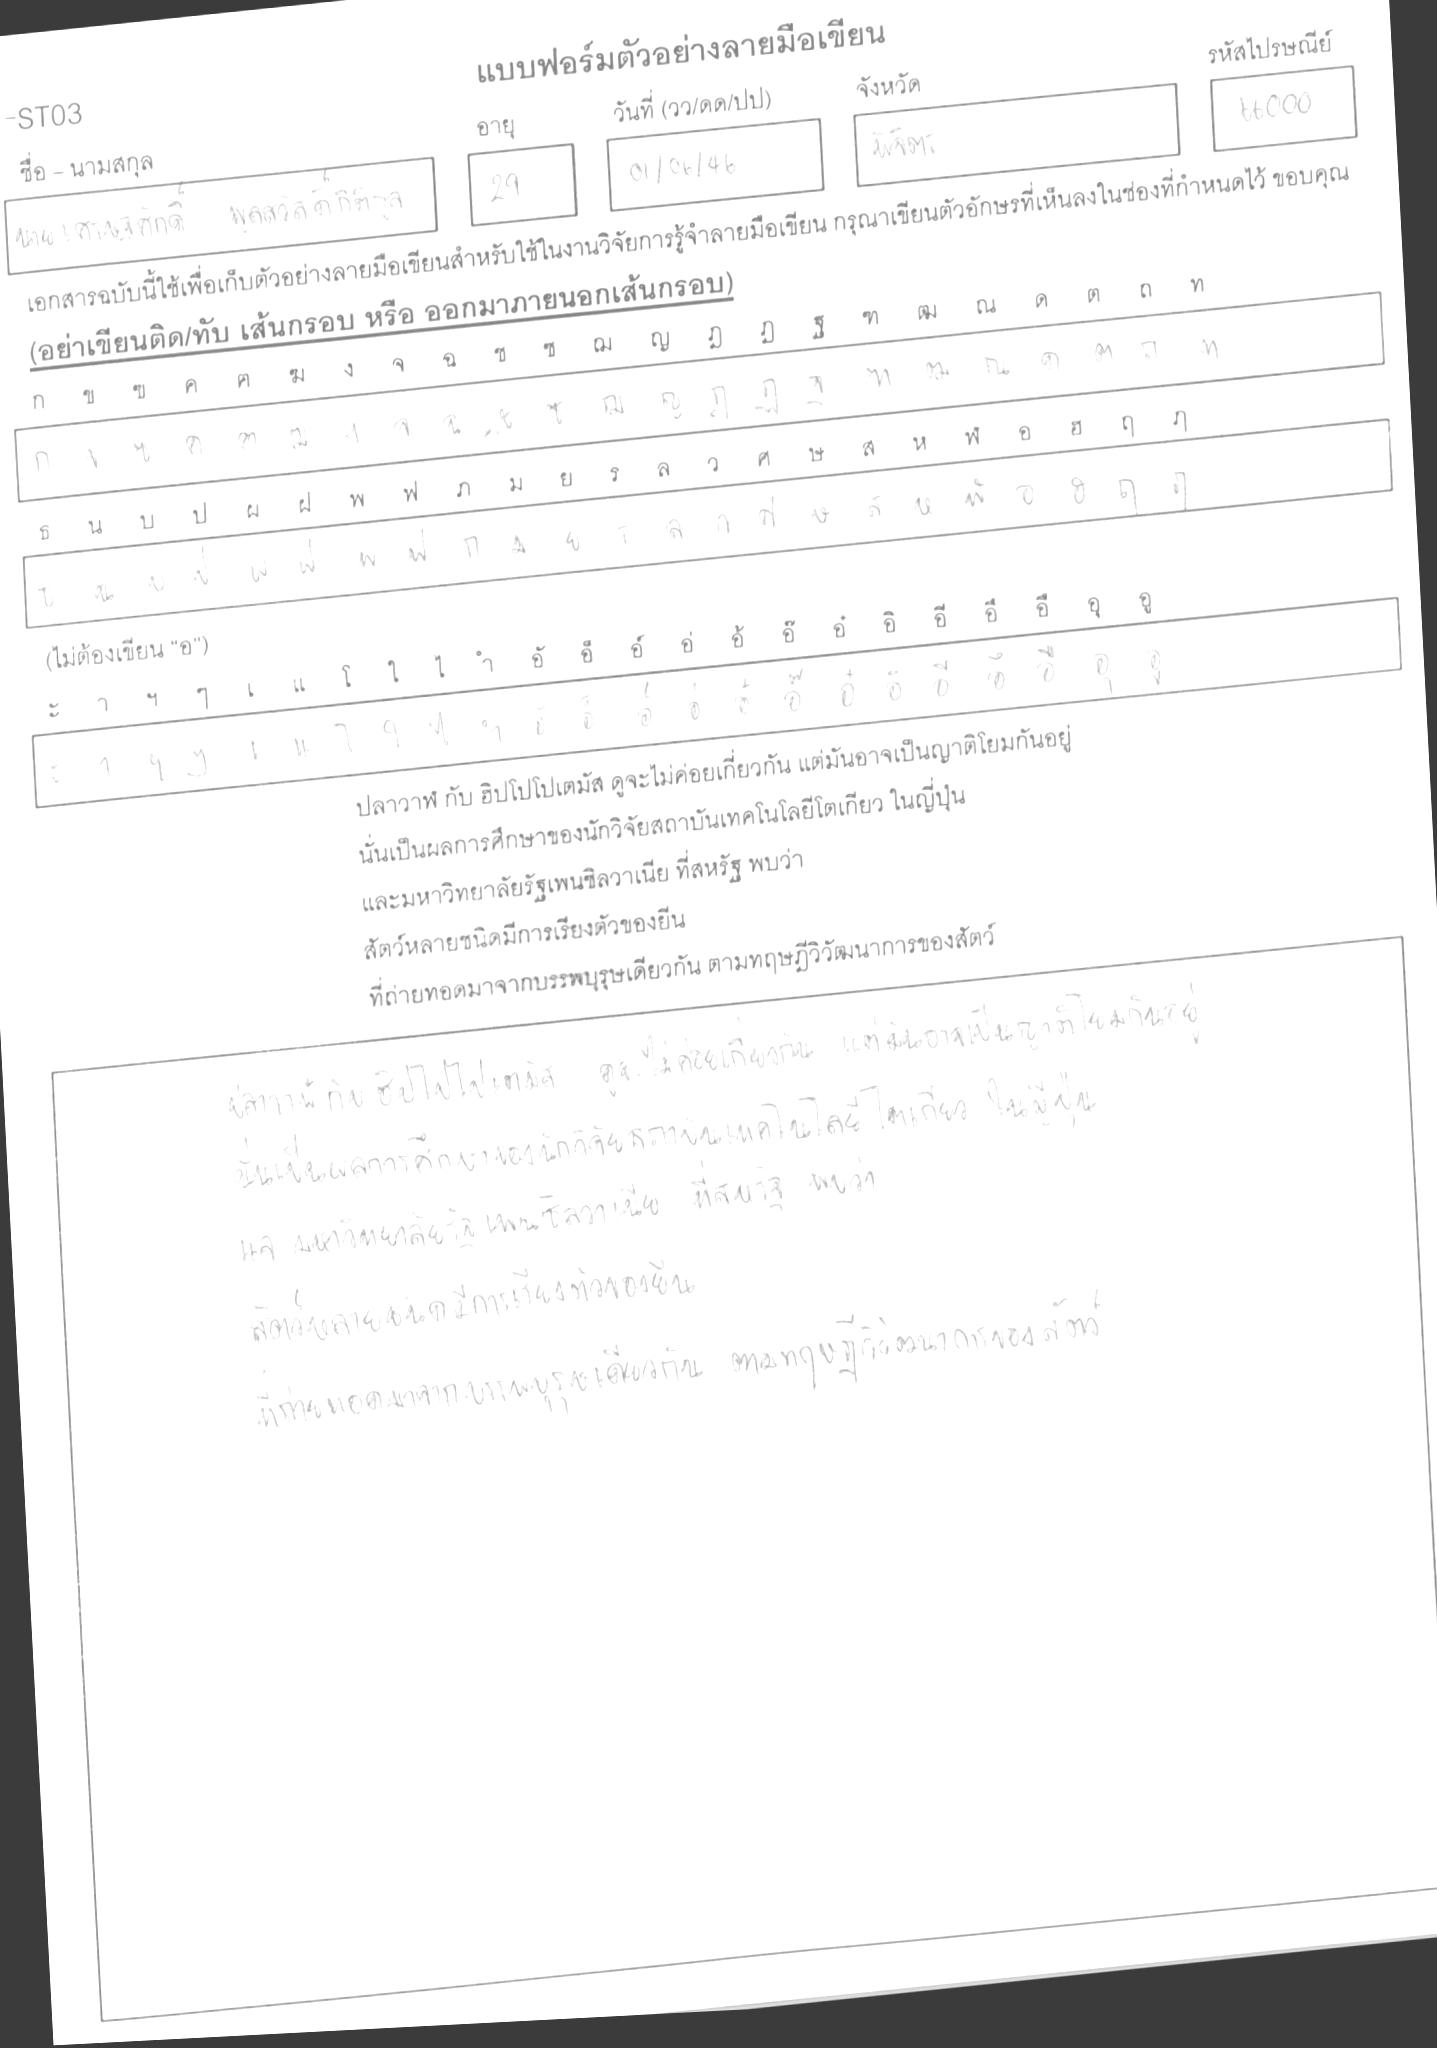 แบบฟอร์มตัวอย่างลายมือเขียน
-ST03
ชื่อ – นามสกุล อายุ วันที่ (วว/ดด/ปป) จังหวัด รหัสไปรษณีย์
นาย 29 01/06/46 พิจิตร 66000
เอกสารฉบับนี้ใช้เพื่อเก็บตัวอย่างลายมือเขียนสำหรับใช้ในงานวิจัยการรู้จำลายมือเขียน กรุณาเขียนตัวอักษรที่เห็นลงในช่องที่กำหนดไว้ ขอบคุณ
(อย่าเขียนติด/ทับ เส้นกรอบ หรือ ออกมาภายนอกเส้นกรอบ)
ก ข ฃ ค ฅ ฆ ง จ ฉ ช ซ ฌ ญ ฎ ฏ ฐ ฑ ฒ ณ ด ต ถ ท
ก ข ฃ ค ฅ ฆ ง จ ฉ ช ซ ฌ ญ ฎ ฏ ฐ ฑ ฒ ณ ด ต ถ ท
ธ น บ ป ผ ฝ พ ฟ ภ ม ย ร ล ว ศ ษ ส ห ฬ อ ฮ ฤ ฦ
ธ น บ ป ผ ฝ พ ฟ ภ ม ย ร ล ว ศ ษ ส ห ฬ อ ฮ ฤ ฦ
(ไม่ต้องเขียน "อ")
ะ า ฯ ๆ เ แ โ ใ ไ ำ อั อ็ อ์ อ่ อ้ อ๊ อ๋ อิ อี อึ อื อุ อู
ะ า ฯ ๆ เ แ โ ใ ไ ำ อั อ็ อ์ อ่ อ้ อ๊ อ๋ อิ อี อึ อื อุ อู
ปลาวาฬ กับ ฮิปโปโปเตมัส ดูจะไม่ค่อยเกี่ยวกัน แต่มันอาจเป็นญาติโยมกันอยู่
นั่นเป็นผลการศึกษาของนักวิจัยสถาบันเทคโนโลยีโตเกียว ในญี่ปุ่น
และมหาวิทยาลัยรัฐเพนซิลวาเนีย ที่สหรัฐ พบว่า
สัตว์หลายชนิดมีการเรียงตัวของยีน
ที่ถ่ายทอดมาจากบรรพบุรุษเดียวกัน ตามทฤษฎีวิวัฒนาการของสัตว์
ปลาวาฬ กับ ฮิปโปโปเตมัส ดูจะไม่ค่อยเกี่ยวกัน แต่มันอาจเป็นญาติโยมกันอยู่
นั่นเป็นผลการศึกษาของนักวิจัยสถาบันเทคโนโลยีโตเกียว ในญี่ปุ่น
แล มหาวิทยาลัยรัฐเพนซิลวาเนีย ที่สหรัฐ พบว่า
สัตว์หลายชนิดมีการเรียงตัวของยีน
ที่ถ่ายทอดมาจากบรรพบุรุษเดียวกัน ตามทฤษฎีวิวัฒนาการของสัตว์